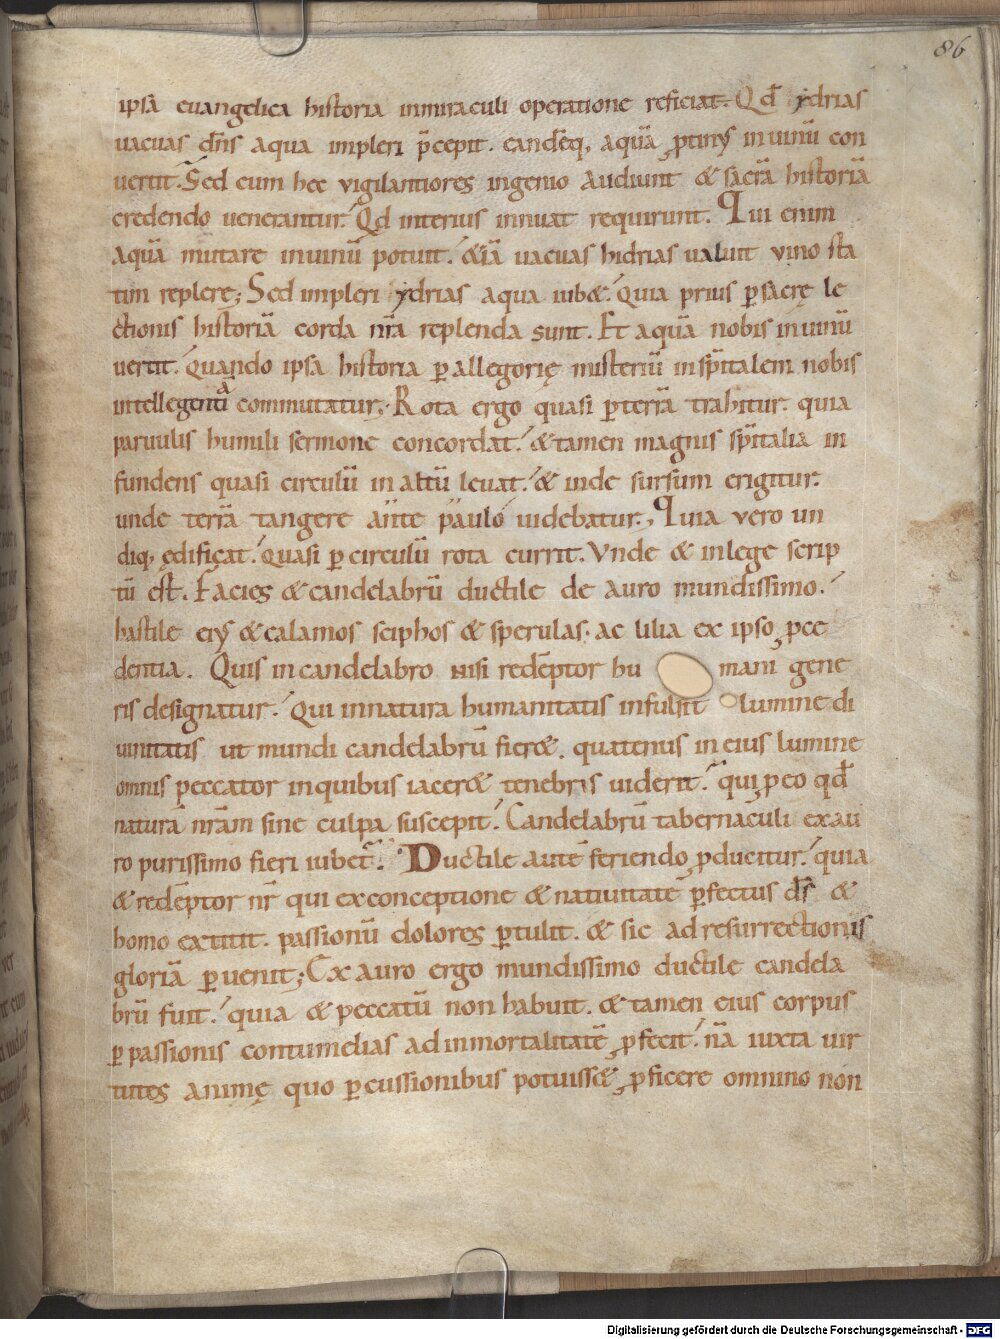 86
ipsā euangelica historia inmiraculi operatione reficiat. Qd̄ ydrias
uacuas dn̄s aqua impleri p̄cepit. eandēq, aquā ꝓtinꝰ inuinū con
uertit. Sed cum hec uigilantiores ingenio audiunt & sacrā historiā
credendo uenerantur. Qd interius innuat requirunt. Qui enim
aquā mutare inuinū potuit. &iā uacuas hidrias ualuit vino sta
tim replere; Sed impleri ydrias aqua iub&. Quia prius ꝑsacrę le
ctionis historiā corda nr̄a replenda sunt. Et aquā nobis inuinū
uertit. Quando ipsa historia ꝑ allegorię misteriū insp̄italem nobis
intellegentiā commutatur; Rota ergo quasi ꝑterrā trahitur. quia
paruulis humili sermone concordat. & tamen magnis sp̄italia in
fundens quasi circulū in altū leuat. & inde sursum erigitur.
unde terrā tangere ante paulo uidebatur. Quia vero un
diq, ędificat. Quasi ꝑ circulū rota currit. Vnde & inlege scrip
tū est. Facies & candelabrū ductile de auro mundissimo.
hastile eiꝰ & calamos sciphos & sperulas. ac lilia ex ipso ꝓce
dentia. Quis incandelabro nisi redēptor hu mani gene
ris designatur. Qui innatura humanitatis infulsit lumine di
uinitatis ut mundi candelabrū fier&. quatenus in eius lumine
omnis peccator inquibus iacer& tenebris uiderit. qui ꝓ eo qd̄
naturā nr̄am sine culpa suscepit. Candelabrū tabernaculi exau
ro purissimo fieri iubet. Ductile autē feriendo ꝓducitur. quia
& redēptor nr̄ qui exconceptione & natiuitate ꝑfectus ds̄ &
homo extitit. passionū dolores ꝑtulit. & sic adresurrectionis
gloriā ꝑuenit; Ex auro ergo mundissimo ductile candela
brū fuit. quia & peccatū non habuit. & tamen eius corpus
ꝑ passionis contumelias adinmortalitatē ꝓfecit. nā iuxta uir
tutes animę quo ꝑcussionibus potuiss& ꝓficere omnino non
Digitalisierung gefördert durch die Deutsche Forschungsgemeinschaft - DFG